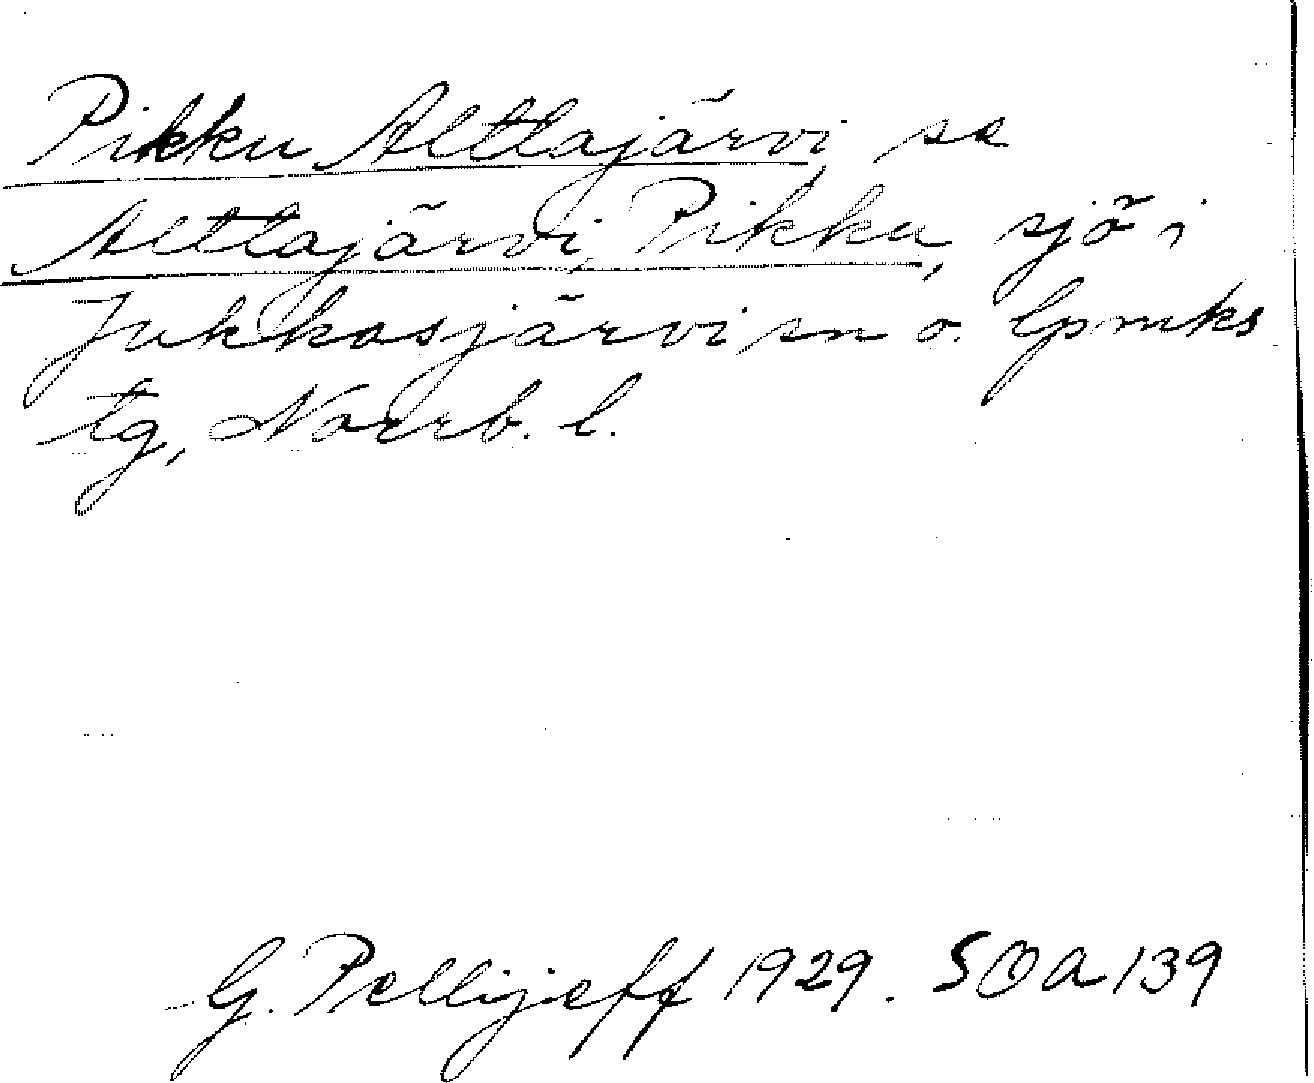 Pikku Altlajärvi se
Altlajärvi, Pikku, sjö i
Jukkasjärvi sn o. lpmks
tg, Norrb. l.
G. Pellijeff 1929. SOA 139